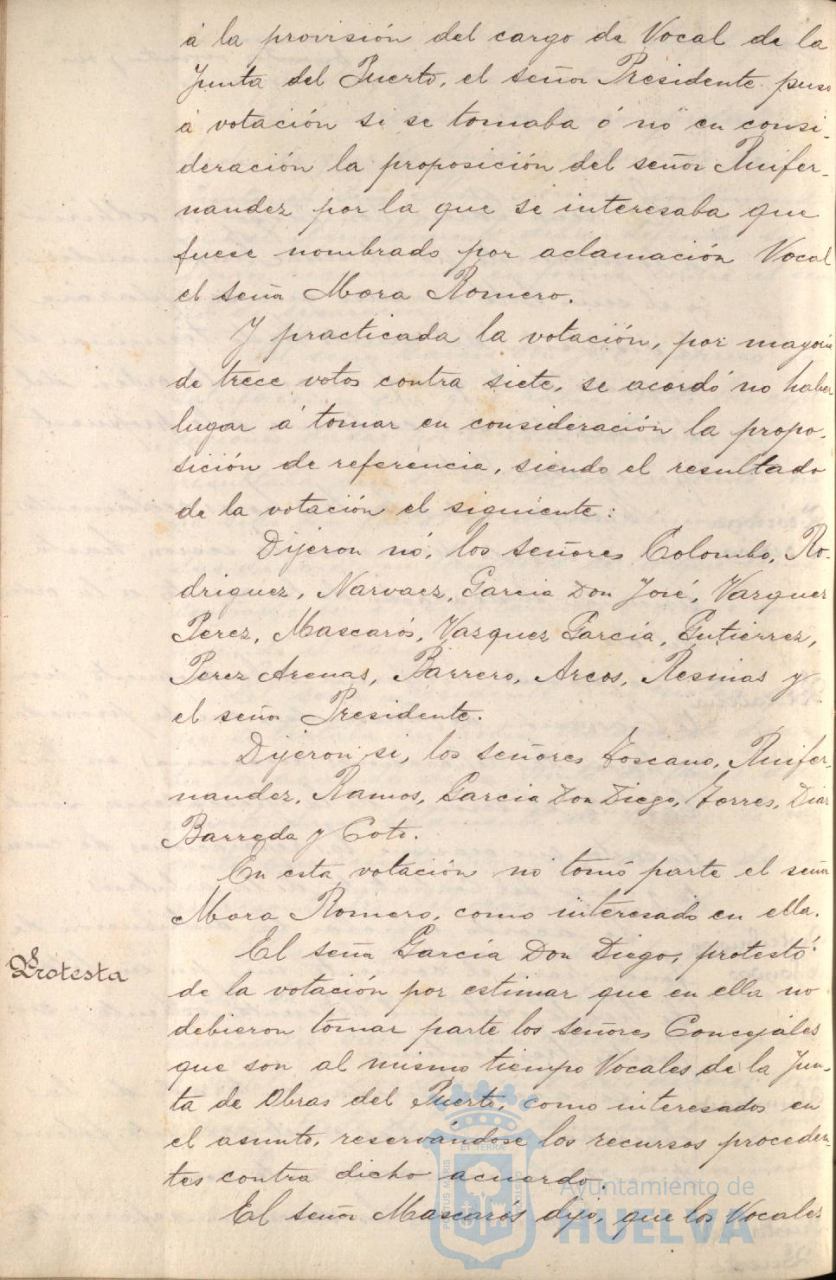 á la provisión del cargo de Vocal de la
Junta del Puerto, el señor Presidente puso
á votación si se tomaba ó nó en consi-
deración la proposición del señor Ruifer-
nandez por la que se interesaba que
fuese nombrado por aclamación Vocal
el señor Mora Romero.
Y practicada la votación, por mayoría
de trece votos contra siete, se acordó no haber
lugar á tomar en consideración la propo-
sición de referencia, siendo el resultado
de la votación el siguiente:
Dijeron nó, los señores Colombo, Ro-
driguez, Narvaez, Garcia Don José, Vazquez
Perez, Mascarós, Vazquez Garcia, Gutierrez,
Perez Arenas, Barrero, Arcos, Resinas y
el señor Presidente.
Dijeron si, los señores Toscano, Ruifer-
nandez, Ramos, Garcia Don Diego, Torres, Diaz
Barreda y Coto.
En esta votación no tomó parte el señor
Mora Romero, como interesado en ella.
Protesta
El señor García Don Diego, protestó
de la votación por estimar que en ella no
debieron tomar parte los señores Concejales
que son al mismo tiempo Vocales de la Jun-
ta de Obras del Puerto, como interesados en
el asunto, reservándose los recursos proceden-
tes contra dicho acuerdo.
El señor Mascarós dijo, que los Vocales
Ayuntamiento de
HUELVA